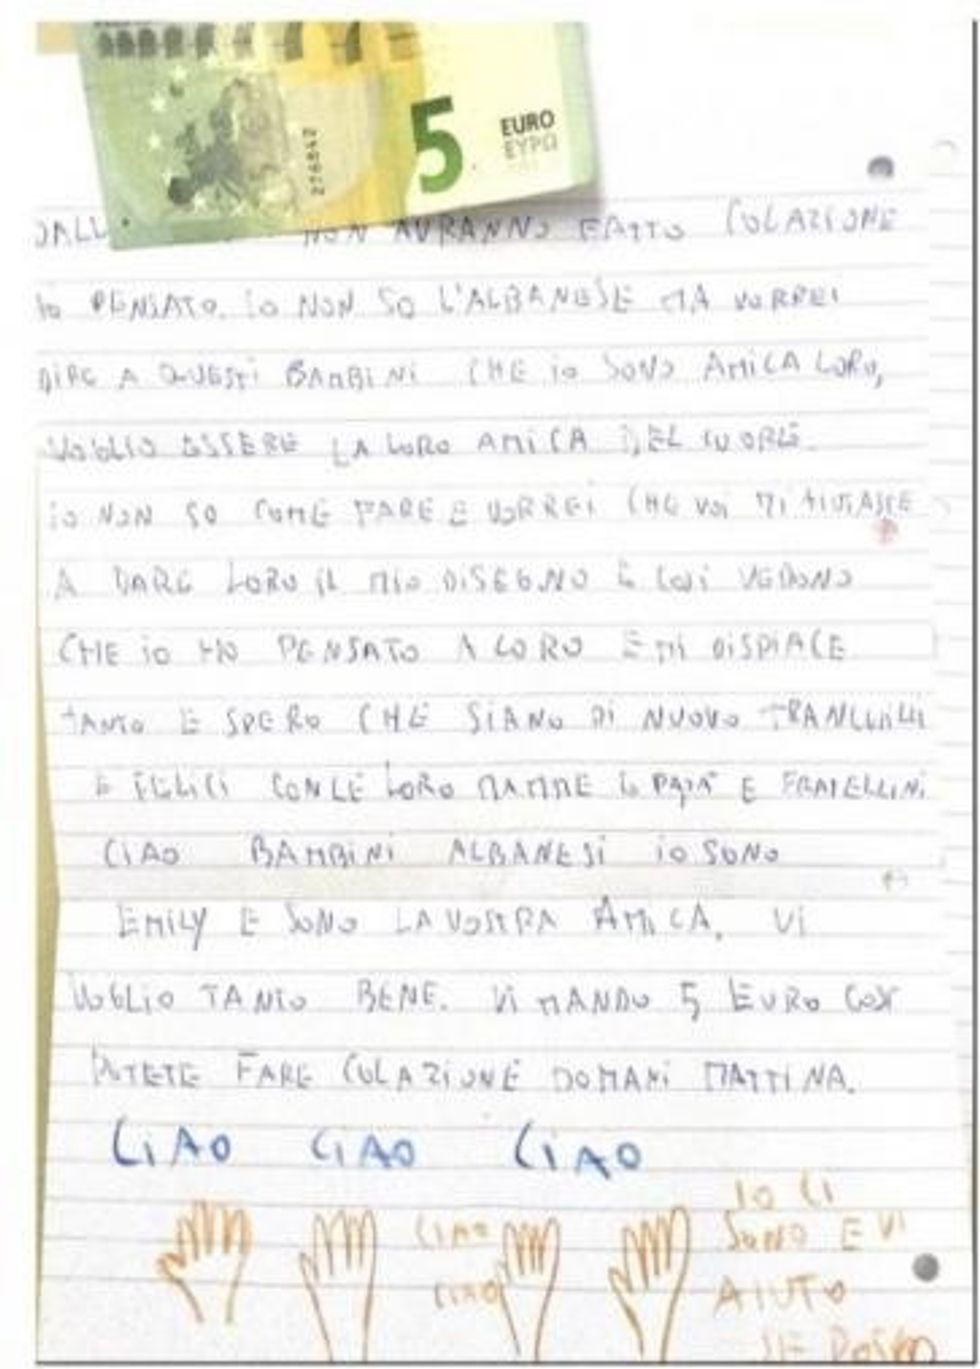 276842
5 EURO
ΕΥΡΩ
DALL NON AVRANNO FATTO COLAZIONE
PENSATO. io NON SO L'ALBANESE MA VORREI
DIRE A QUESTI BAMBINI CHE io SONO AMICA LORO,
VOGLIO ESSERE LA LORO AMICA DEL CUORE.
io NON SO COME FARE E VORREI CHE VOI MI AIUTASTE
A DARE LORO IL MIO DISEGNO E COSI VEDONO
CHE io HO PENSATO A LORO E MI DISPIACE
TANTO E SPERO CHE SIANO DI NUOVO TRANQUILLI
E FELICI CON LE LORO MAMME E PAPÀ E FRATELLINI
CIAO BAMBINI ALBANESI io SONO
EMILY E SONO LA VOSTRA AMICA. VI
VOGLIO TANTO BENE. VI MANDO 5 EURO COSI
POTETE FARE COLAZIONE DOMANI MATTINA.
CIAO CIAO CIAO
CIAO
CIAO
IO CI
SONO E VI
AIUTO
SE POSSO